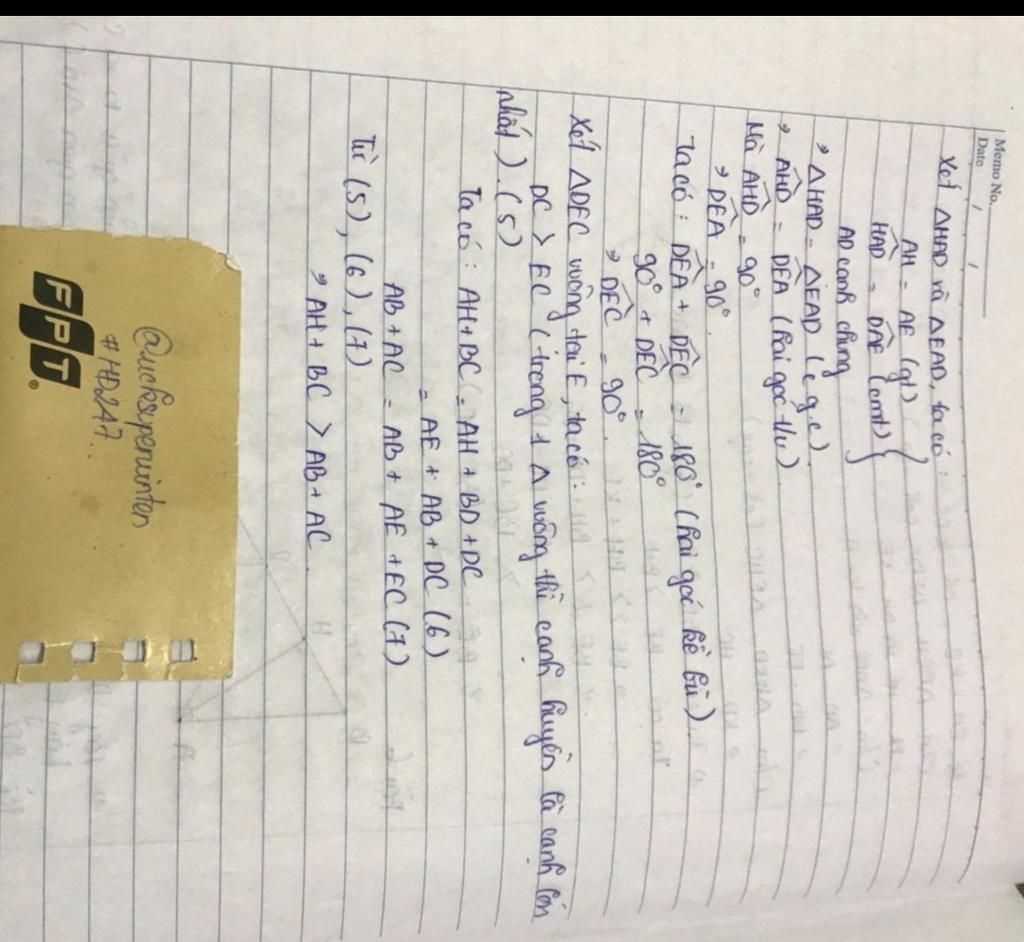 Memo No.
Date / /
Xét ΔHAD và ΔEAD, ta có:
AH = AE (gt)
HAD = DAE (cmt)
AD cạnh chung
, ΔHAD = ΔEAD (c g c)
, AHD = DEA (hai góc t/ư)
Mà AHD = 90°
, DEA = 90°.
Ta có: DEA + DEC = 180° (hai góc kề bù)
90° + DEC = 180°
, DEC = 90°.
Xét ΔDEC vuông tại E, ta có:
DC > EC (trong 1 Δ vuông thì cạnh huyền là cạnh lớn
nhất). (5)
Ta có: AH + BC = AH + BD + DC
= AE + AB + DC (6)
AB + AC = AB + AE + EC (7)
Từ (5), (6), (7)
, AH + BC > AB + AC.
@ucksyperwinter
#HD247
FPT